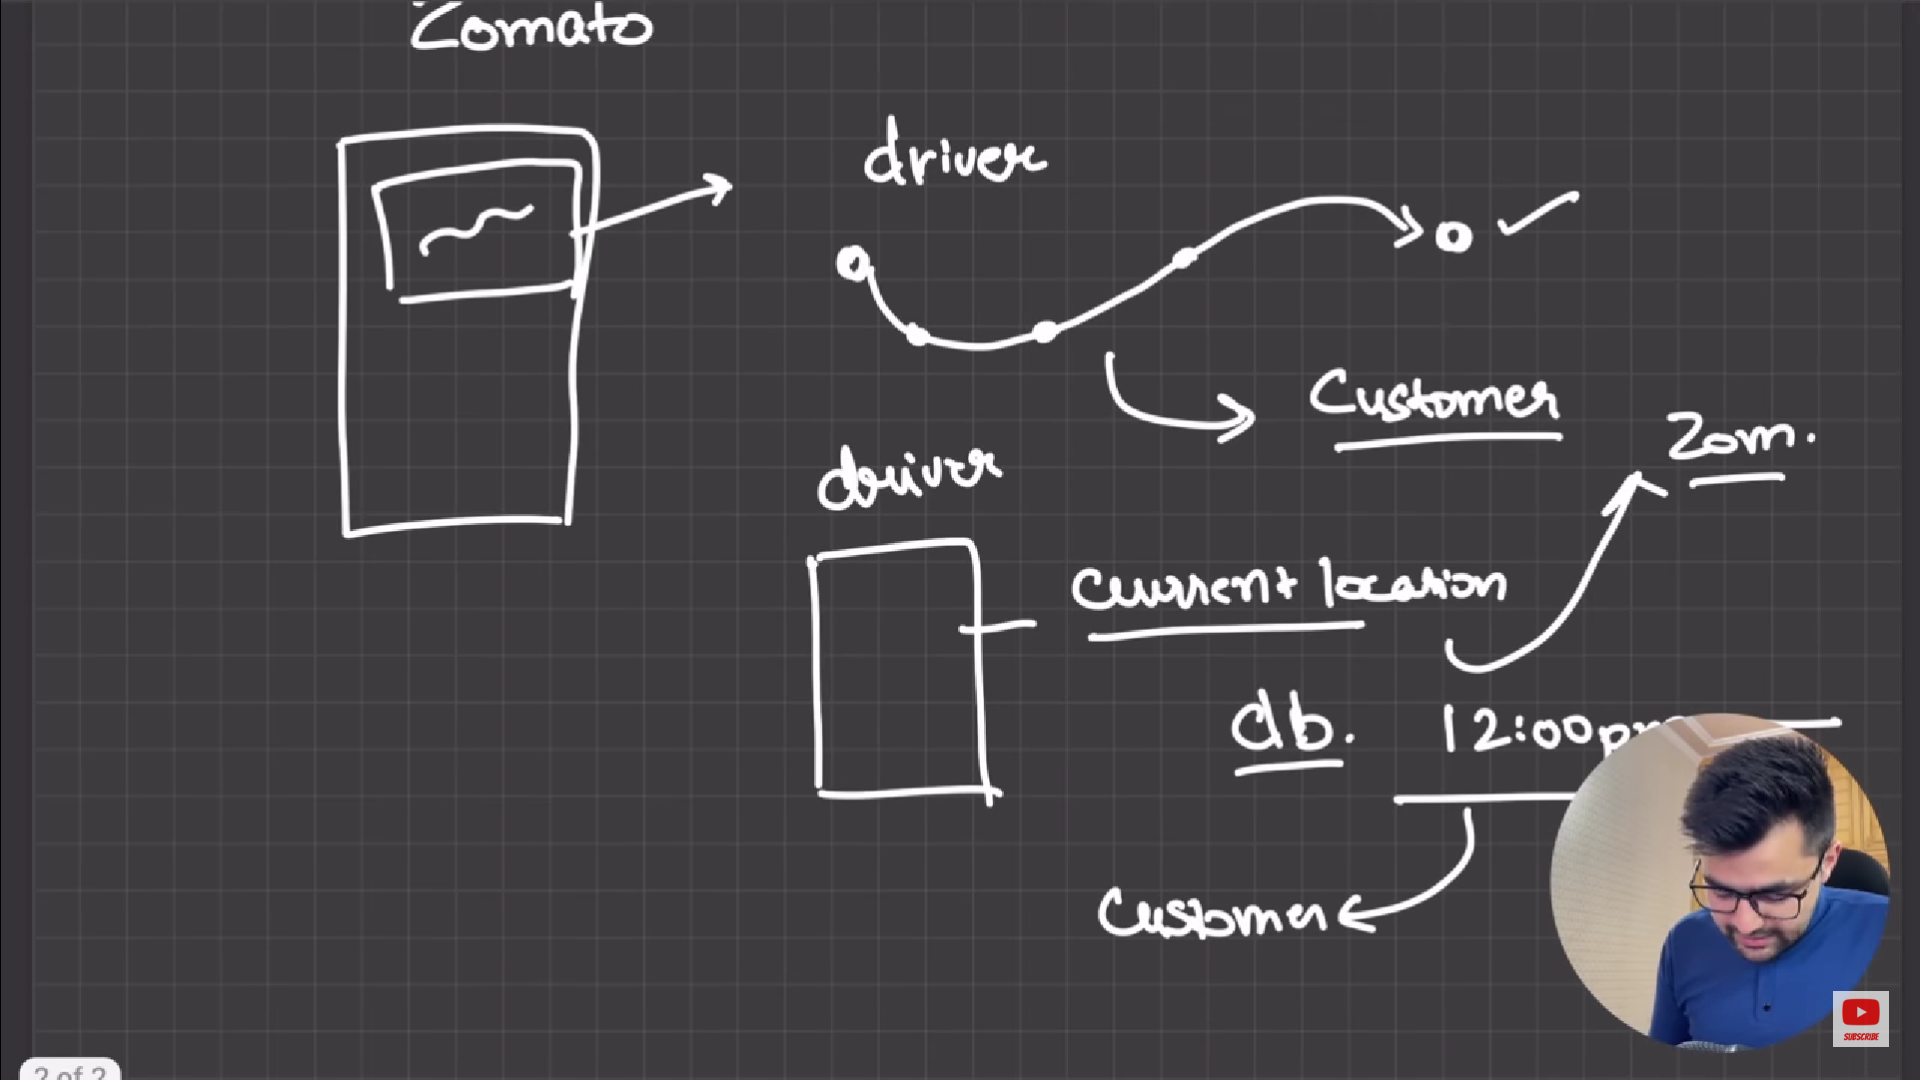 Zomato
driver
Customer
Zom.
driver
current location
db.
12:00p
Customer
SUBSCRIBE
2 of 2